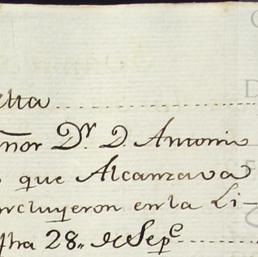 elta
eñor Dr. D. Antonio
que Alcanzava
oncluyeron en la Li-
fha 28,, de Sepe.